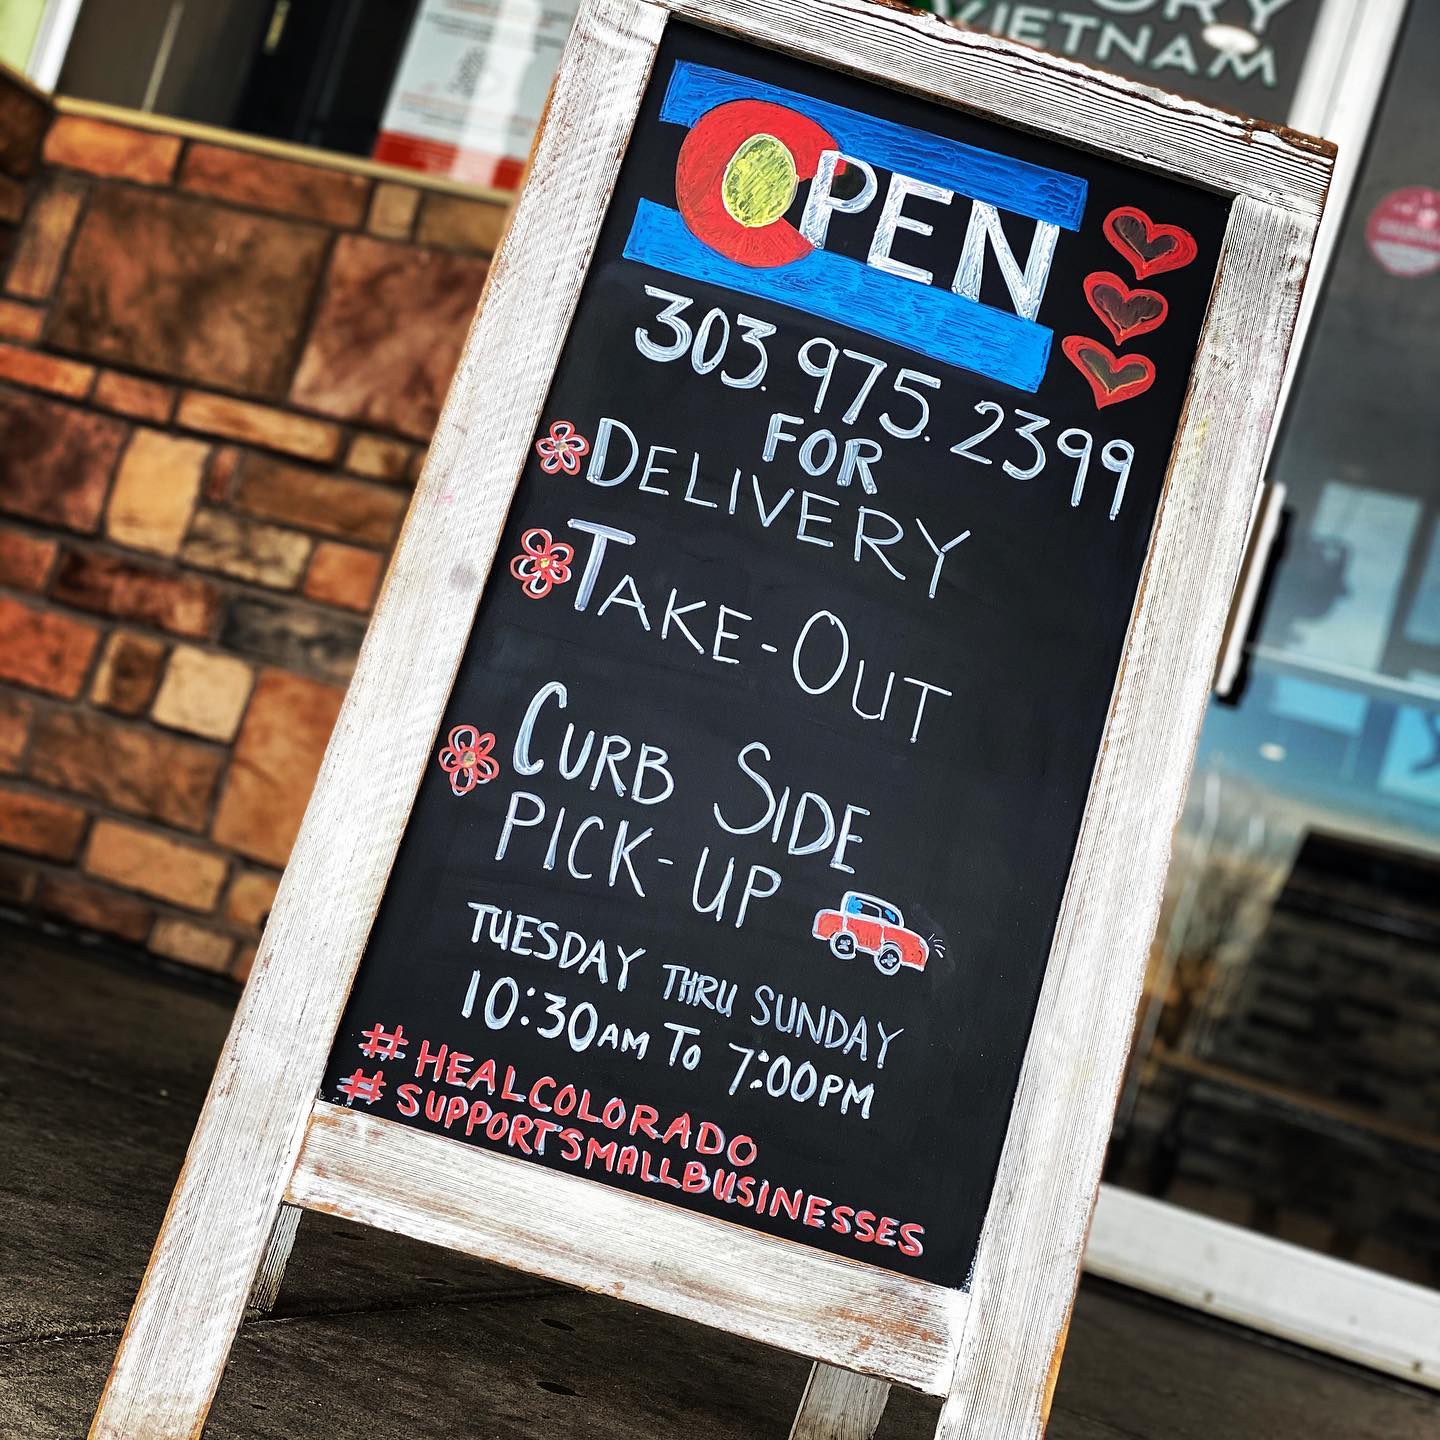 VIETNAM
OPEN
303.975.2399
FOR
DELIVERY
TAKE-OUT
CURB SIDE
PICK-UP
TUESDAY THRU SUNDAY
10:30AM TO 7:00PM
#HEALCOLORADO
#SUPPORTSMALLBUSINESSES